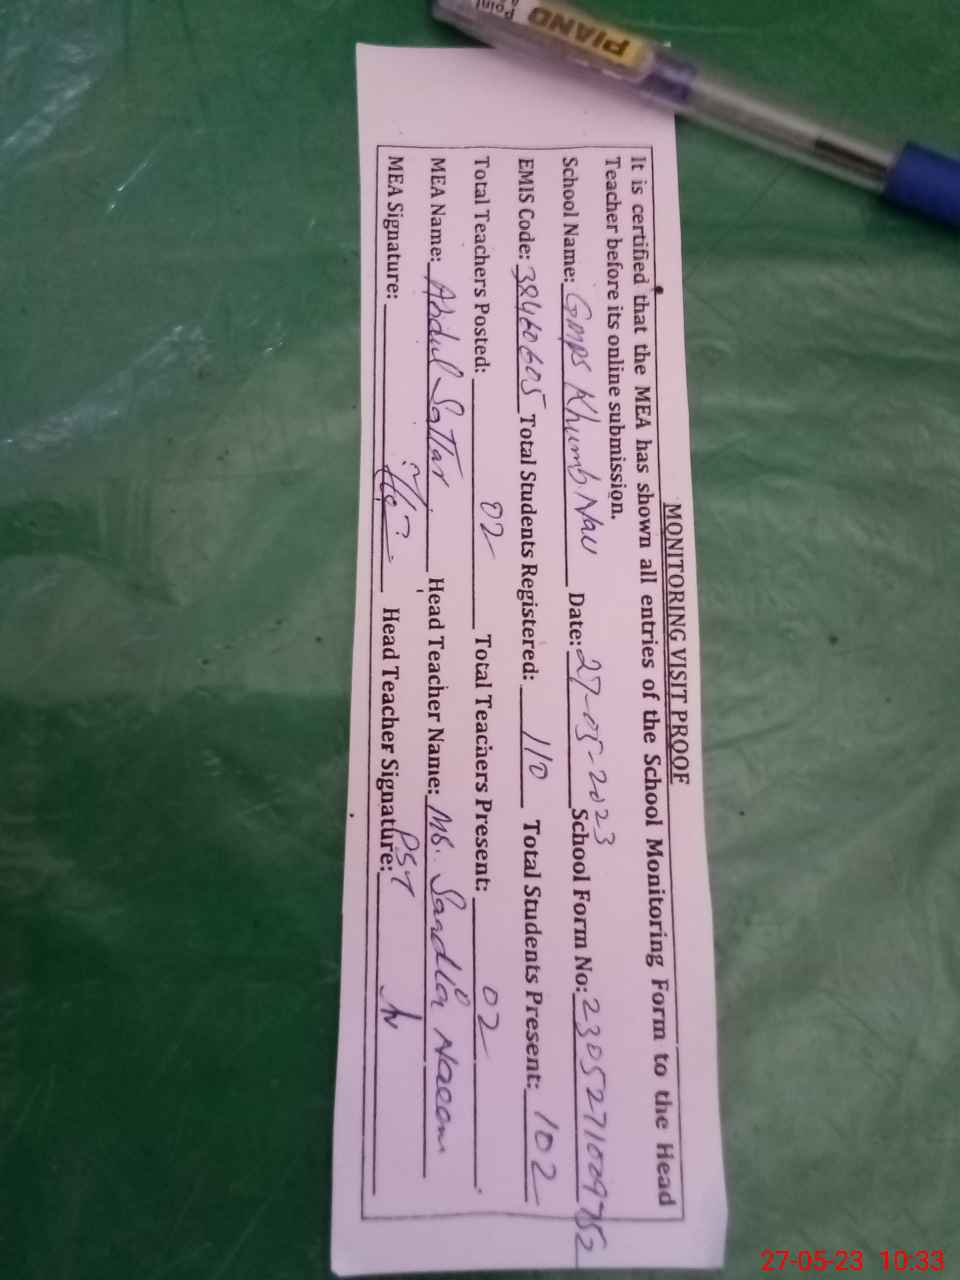 MONITORING VISIT PROOF
It is certified that the MEA has shown all entries of the School Monitoring Form to the Head
Teacher before its online submission.
School Name: GMPS Khumb Nau Date: 27-05-2023 School Form No: 2305271009752
EMIS Code: 38460605 Total Students Registered: 110 Total Students Present: 102
Total Teachers Posted: 02 Total Teachers Present: 02
MEA Name: Abdul Sattar Head Teacher Name: Ms. Sandia Naeem
MEA Signature: Head Teacher Signature: PST
PIANO
Point
27-05-23 10:33